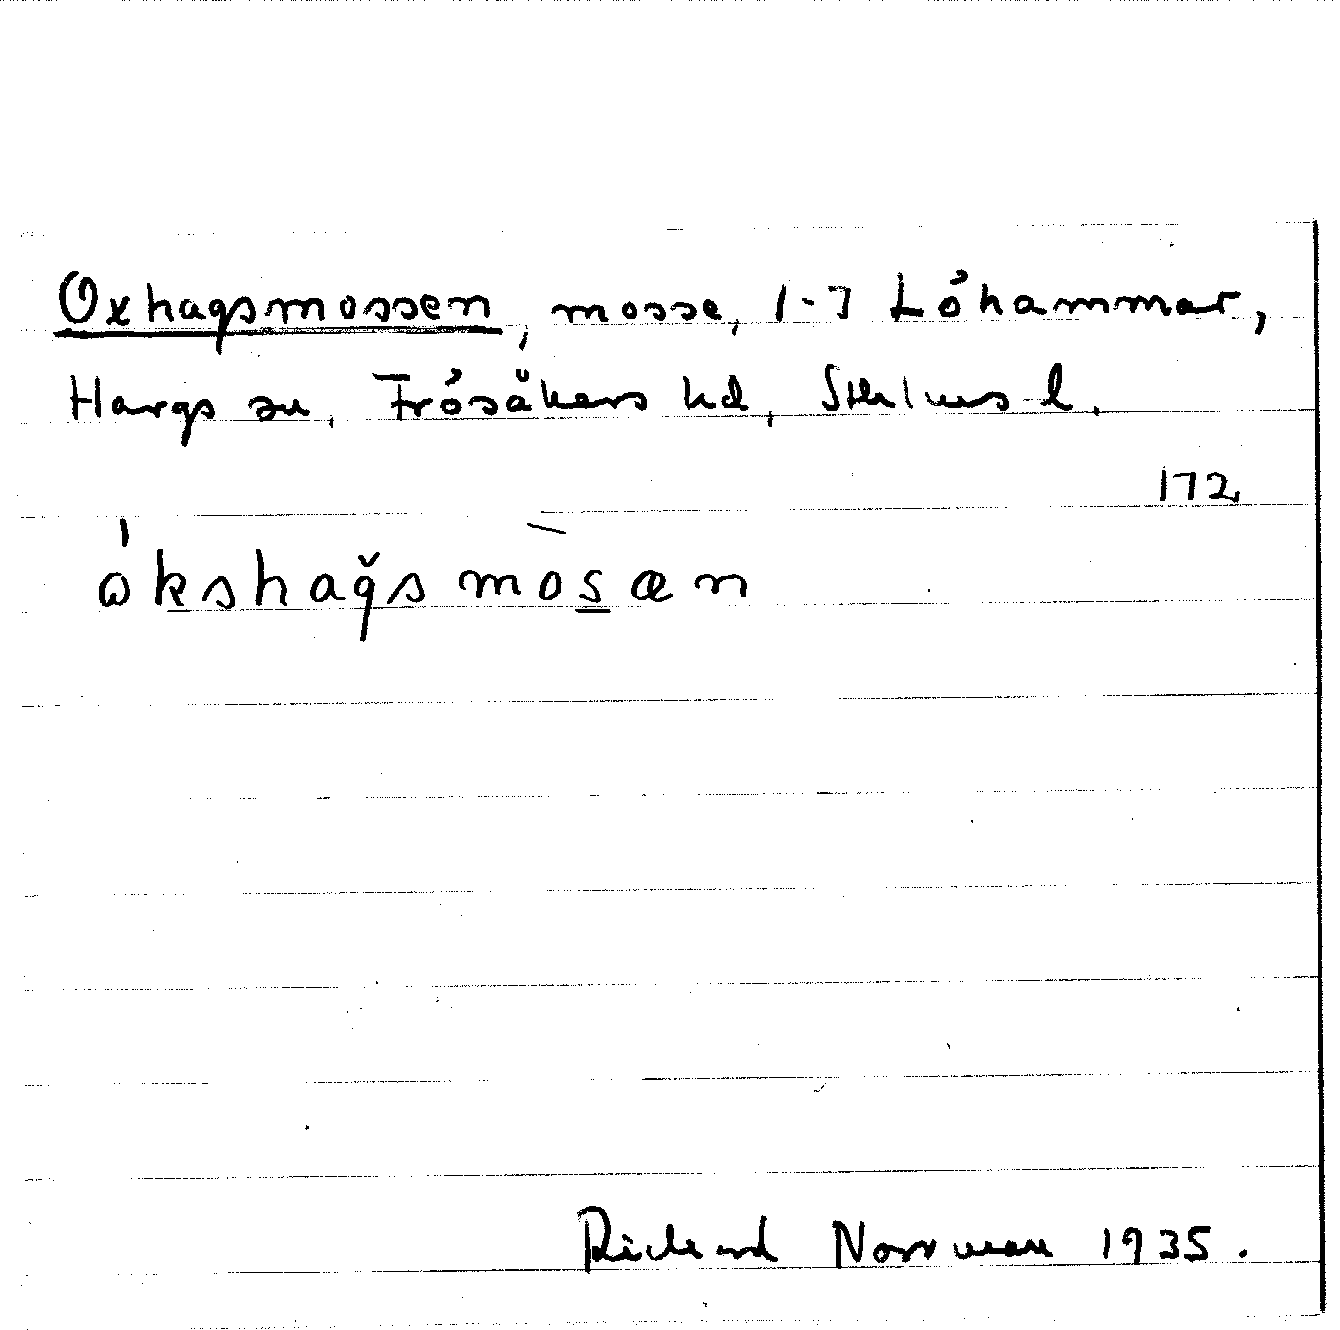 Oxhagsmossen, mosse, 1-7 Löhammar,
Hargs sn, Frösåkers hd, Sthlms l.
172
ωkshaǧs mos̲æn
Richard Norrman 1935.